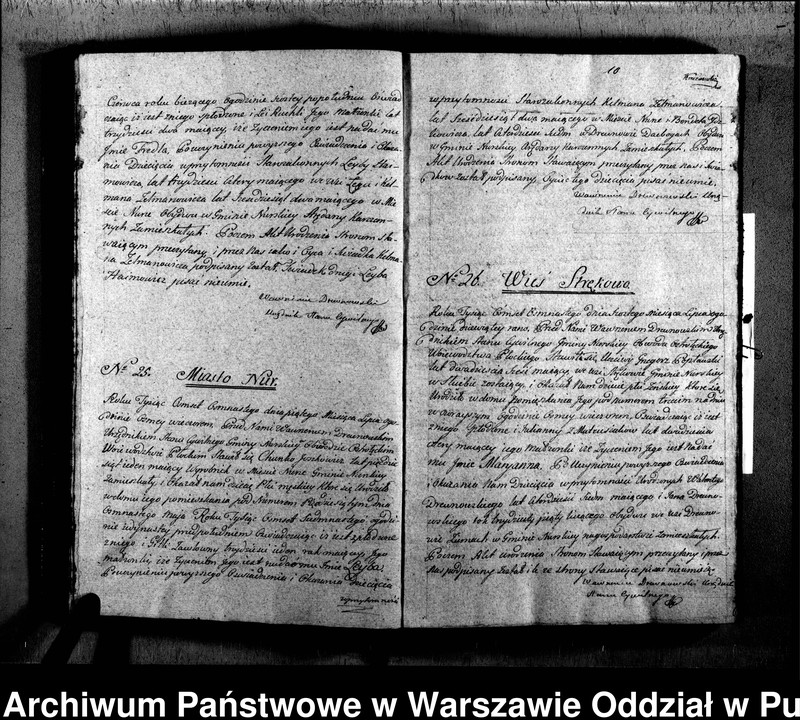 Czerwca roku bieżącego o godzinie szostey popołudniu Oświad
czając iż iest z niego spłodzone i z Ruchli Jego Małżonki lat
trzydzieści dwa maiącey iż życzeniem jego iest nadać mu
Imie Fredla Po uczynieniu powyższego Oświadczenia i Okaza
nia Dziecięcia w przytomności Starozakonnych Leyby Haj
mowicza lat trzydzieści cztery maiącego we wsi i Kel
mana Zelmanowicza lat Sześćdziesiąt dwa maiącego w Mie
ście Nurze Obydwu w Gminie Nurskiey Arędarzy Karczem
nych Zamieszkałych. Poczem Akt Urodzenia Stronom Sta
waiącym przeczytany i przez Nas iako i Oyca i Świadka Kelma
na Zelmanowicza podpisany został Świadek drugi Leyba
Haimowicz pisać nieumie.
Wawrzeniec Drewnowski
Urzędnik Stanu Cywilnego
No 25. Miasto Nur.
Roku Tysiąc Osmset Osmnastego dnia piątego Miesiąca Lipca o go
dzinie Osmey wieczorem. Przed Nami Wawrzeńcem Drewnowskim
Urzędnikiem Stanu Cywilnego Gminy Nurskiey Obwodzie Ostrołęckim
Województwie Płockim Stawił się Chunko Joskowicz lat pięćdzie
siąt ieden maiący Wyrobnik w Mieście Nurze Gminie Nurskiey
Zamieszkały i Okazał nam dziecię Płci męskiey które się Urodziło
w domu iego pomieszkania pod Numerem Piędziesiątym dnia
Osmnastego Maja Roku Tysiąc Osmset Siedmnastego o godzi
nie przedpołudniem Oświadczając iż iest spłodzone
z niego i Gitli Zawłowny trzydzieści ieden rok maiącey Jego
małżonki, iż życzeniem Jego iest nadać mu Imie Leyba.
Po uczynieniu powyższego Oświadczenia i Okazaniu Dziecięcia
w przytomności
10
w przytomności Starozakonnych Kelmana Zelmanowicza
lat Sześćdziesiąt dwa maiącego w Mieście Nurze i Berka
lat czterdzieści Siedm w Drewnowie Daćbogach Obydwu
w Gminie Nurskiey Arędarzy Karczemnych Zamieszkałych. Poczem
Akt Urodzenia Stronom Stawaiącym przeczytany przez Nas i Świa
dków został podpisany, Oyciec tego dziecięcia pisać nieumie.
Wawrzeniec Drewnowski Urzę
dnik Stanu Cywilnego
No 26. Wieś Strękowo
Roku Tysiąc Osmset Osmnastego dnia szostego Miesiąca Lipca o go
dzinie dziewiątey rano. Przed Nami Wawrzeńcem Drewnowskim Urzę
dnikiem Stanu Cywilnego Gminy Nurskiey Obwodu Ostrołęckiego
Województwa Płockiego Stawił się Uczciwy Grzegorz
lat dwadzieścia Sześć maiący, we wsi Strękowie Gminie Nurskiey
w służbie zostaiący, i Okazał Nam dziecię płci żeńskiey które się
Urodziło w domu pomieszkania Jego pod numerem trzecim na dniu
wczorayszym o godzinie Osmey wieczorem. Oświadczając iż iest
z niego spłodzone i Julianny z Mateusiaków lat dwadzieścia
cztery maiącey iego małżonki iż życzeniem Jego iest nadać
mu Imie Maryanna. Po Uczynieniu powyższego Oświadczenia
i Okazaniu Nam Dziecięcia w przytomności Urodzonych Walentego
Drewnowskiego lat czterdzieści Siedm maiącego i Jana Drewno
wskiego rok trzydziesty piąty liczącego Obydwu we wsi Drewno
wie Ziemach w Gminie Nurskiey na gospodarstwie Zamieszkałych.
Poczem Akt Urodzenia Stronom Stawaiącym przeczytany i przez
Nas podpisany został i ile że strony Stawaiące pisać nieumieią.
Wawrzeniec Drewnowski Urzędnik
Stanu Cywilnego
Archiwum Państwowe w Warszawie Oddział w Pu